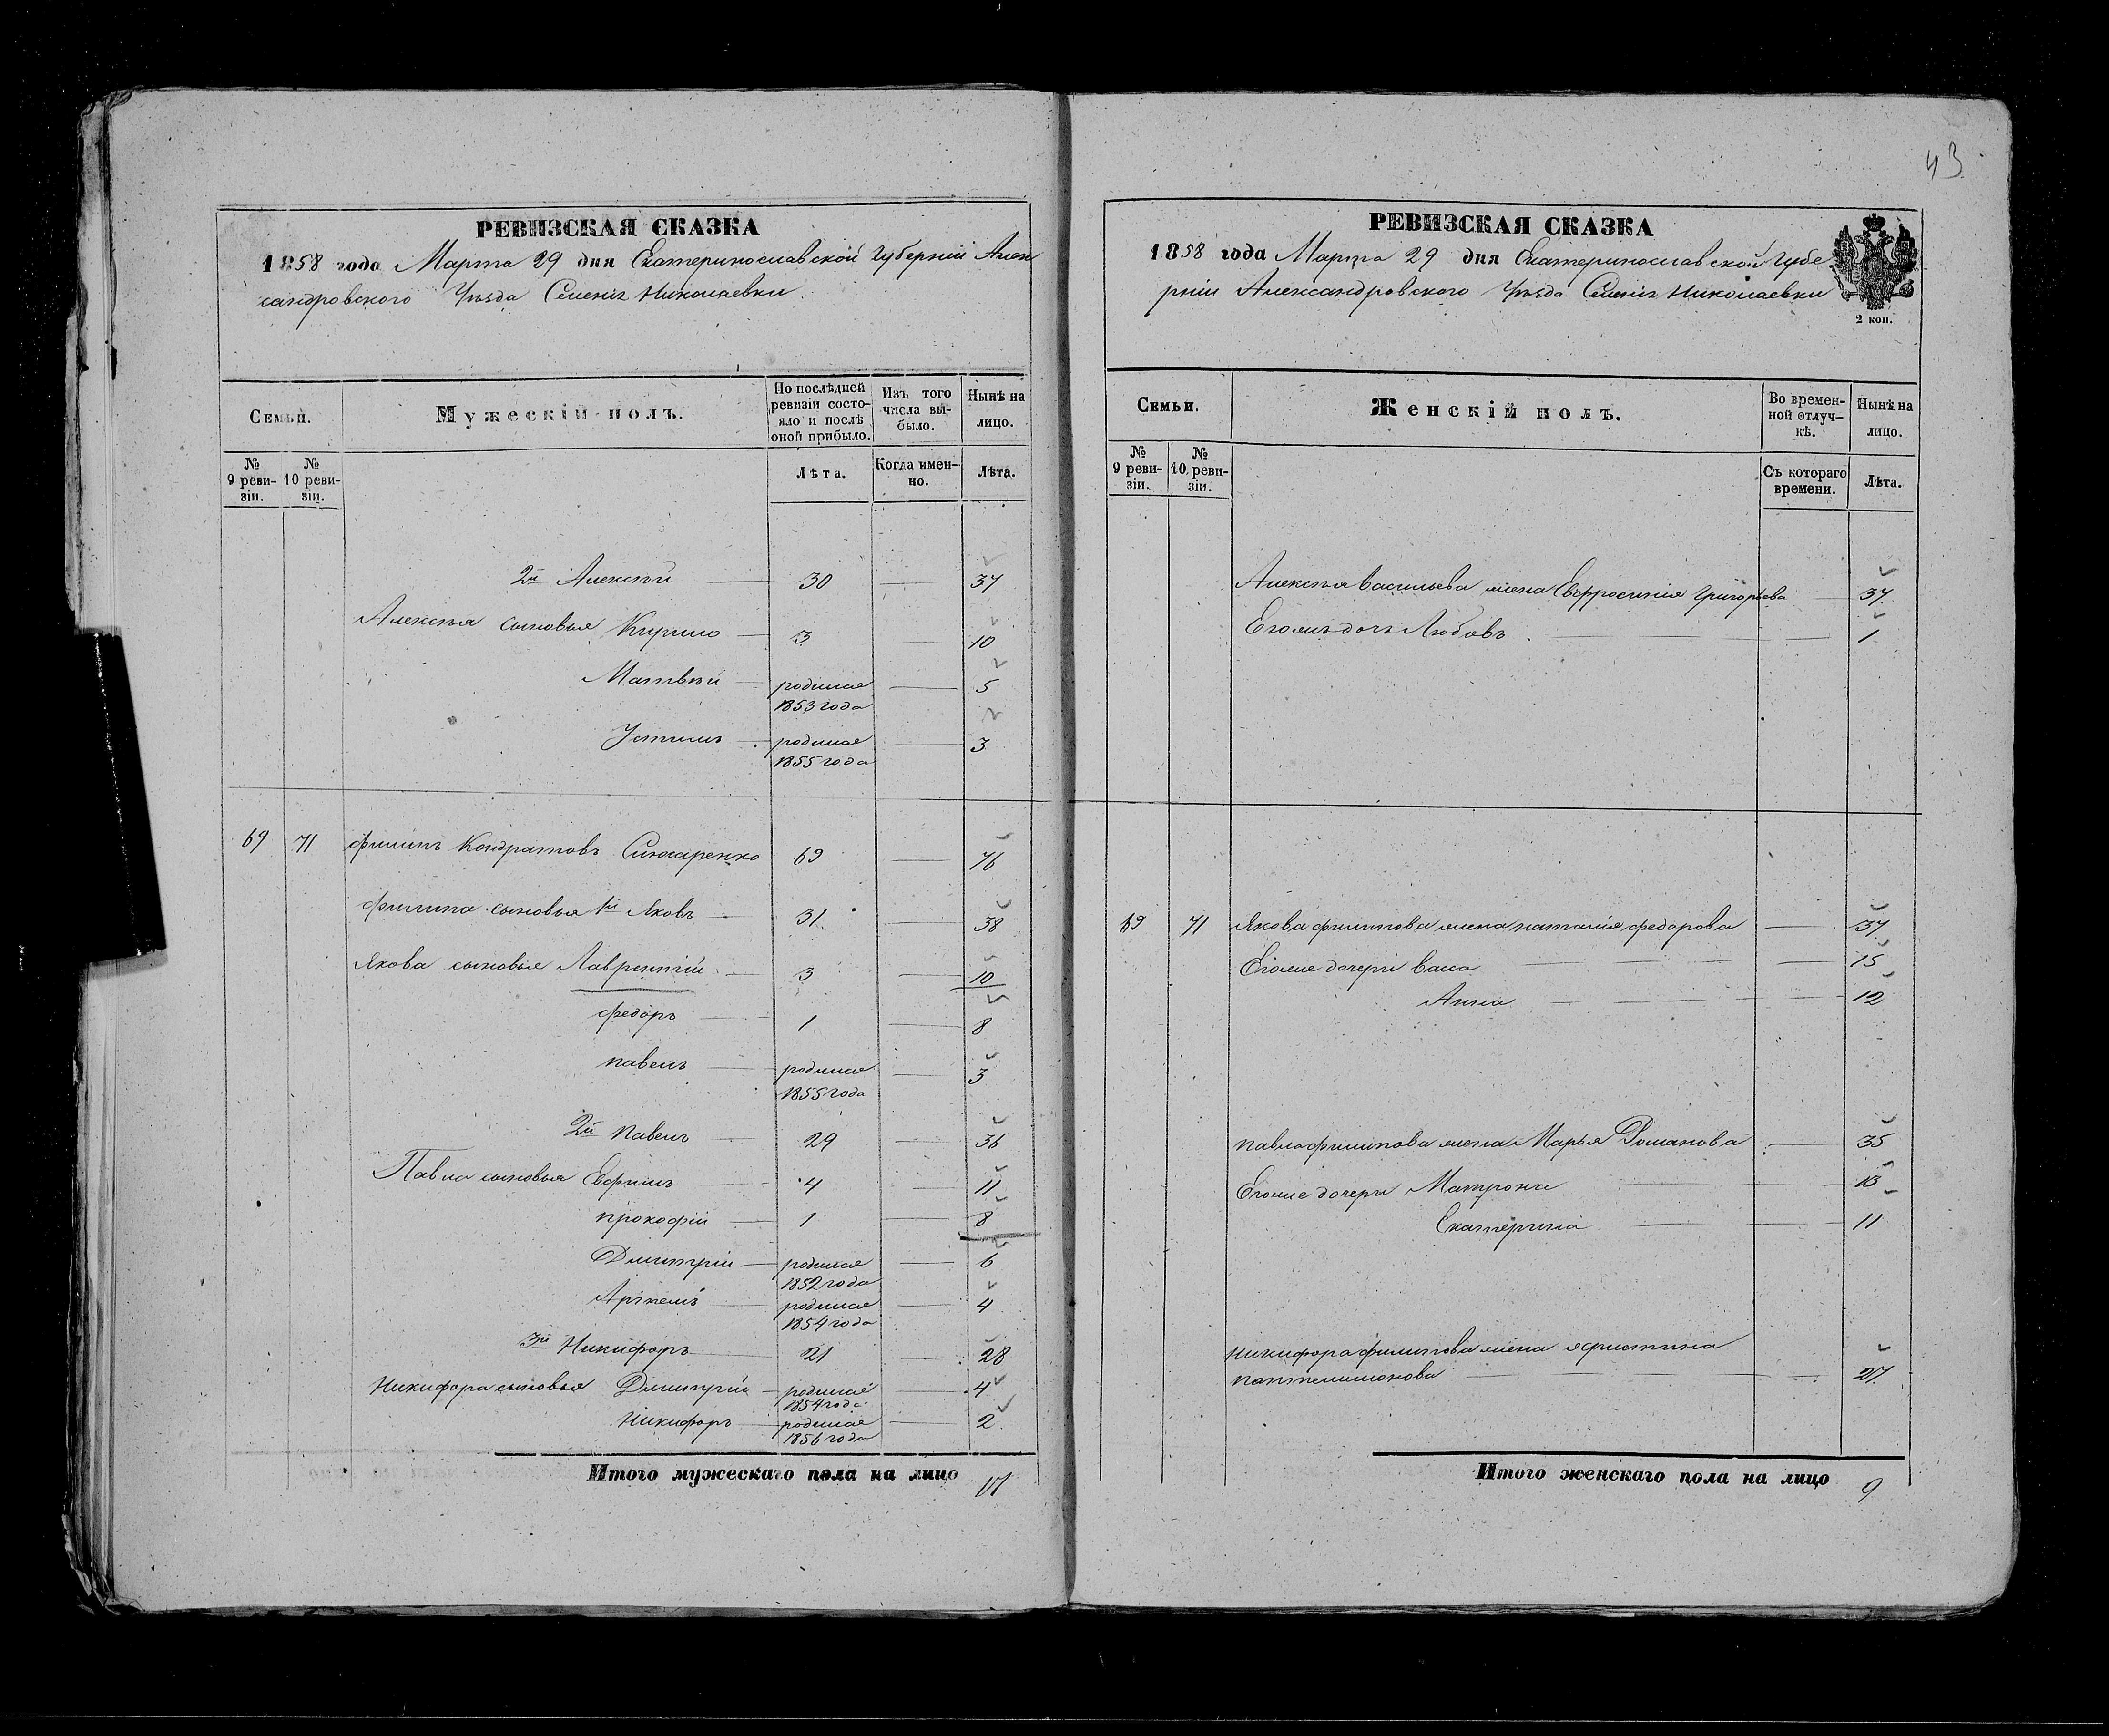 43
РЕВИЗСКАЯ СКАЗКА
1858 года Марта 29 дня Екатеринославской Губерніи Алек
сандровского Уѣзда Селенія Николаевки
Семьи.
Мужескій полъ.
По послѣдней ревизіи состо-
яло и послѣ
оной прибыло.
Изъ того
числа вы-
было.
Нынѣ на
лицо.
№
9 реви-
зіи.
№
10 реви-
зіи.
Лѣта.
Когда имен-
но.
Лѣта.
2й Алексѣй 30 37
Алексѣя сыновья Кирило 3 10
Матвѣй родился 5
1853 года
Устинъ родился 3
1855 года
69 71 Филипъ Кондратовъ 69 76
Филипа сыновья 1й Яковъ 31 38
Якова сыновья Лаврентій 3 10
Федоръ 1 8
Павелъ родился 3
1855 года
2й Павелъ 29 36
Павла сыновья Евфимъ 4 11
Прокофій 1 8
Дмитрій родился 6
1852 года
Артемъ родился 4
1854 года
3й Никифоръ 21 28
Никифора сыновья Дмитрій родился 4
1854 года
Никифоръ родился 2
1856 года
Итого мужескаго пола на лицо 17
РЕВИЗСКАЯ СКАЗКА
1858 года Марта 29 дня Екатеринославской Губе
рніи Александровского Уѣзда Селенія Николаевки
2 коп.
Семьи.
Женскій полъ.
Во времен-
ной отлуч-
кѣ.
Нынѣ на
лицо.
№
9 реви-
зіи.
№
10 реви-
зіи.
Съ котораго
времени.
Лѣта.
Алексѣя Васильева жена Евфросинія Григорьева 37
Егожъ дочь Любовь 1
69 71 Якова Филипова жена Наталія Федорова 37
Егоже дочери Васса 15
Анна 12
Павла Филипова жена Марья Романова 35
Егоже дочери Матрона 13
Екатерина 11
Никифора Филипова жена
Пантелимонова 27
Итого женскаго пола на лицо 9